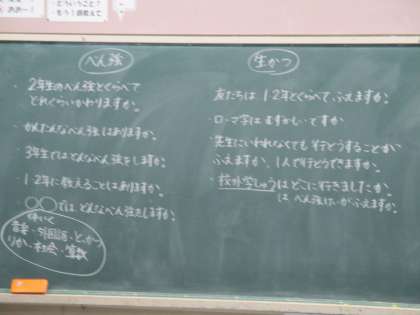 どういうこと？
もう１回教えて
べん強
・２年生のべん強とくらべて
どれくらいかわりますか。
・かんたんなべん強はありますか。
・３年生ではどんなべん強をしますか。
・１・２年に教えることはありますか。
・〇〇では、どんなべん強をしますか。
たいいく
音楽・外国語・
りか・社会・算数
生かつ
友だちは１２年とくらべてふえますか。
・ローマ字はむずかしいですか
・先生にいわれなくても行どうすることが
ふえますか。１人で行どうできますか。
・校外学しゅうはどこに行きましたか。
は べん強 がふえますか。